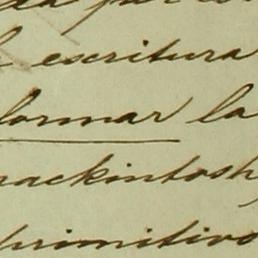 escritura
formar la
mackintosh,
primitivo